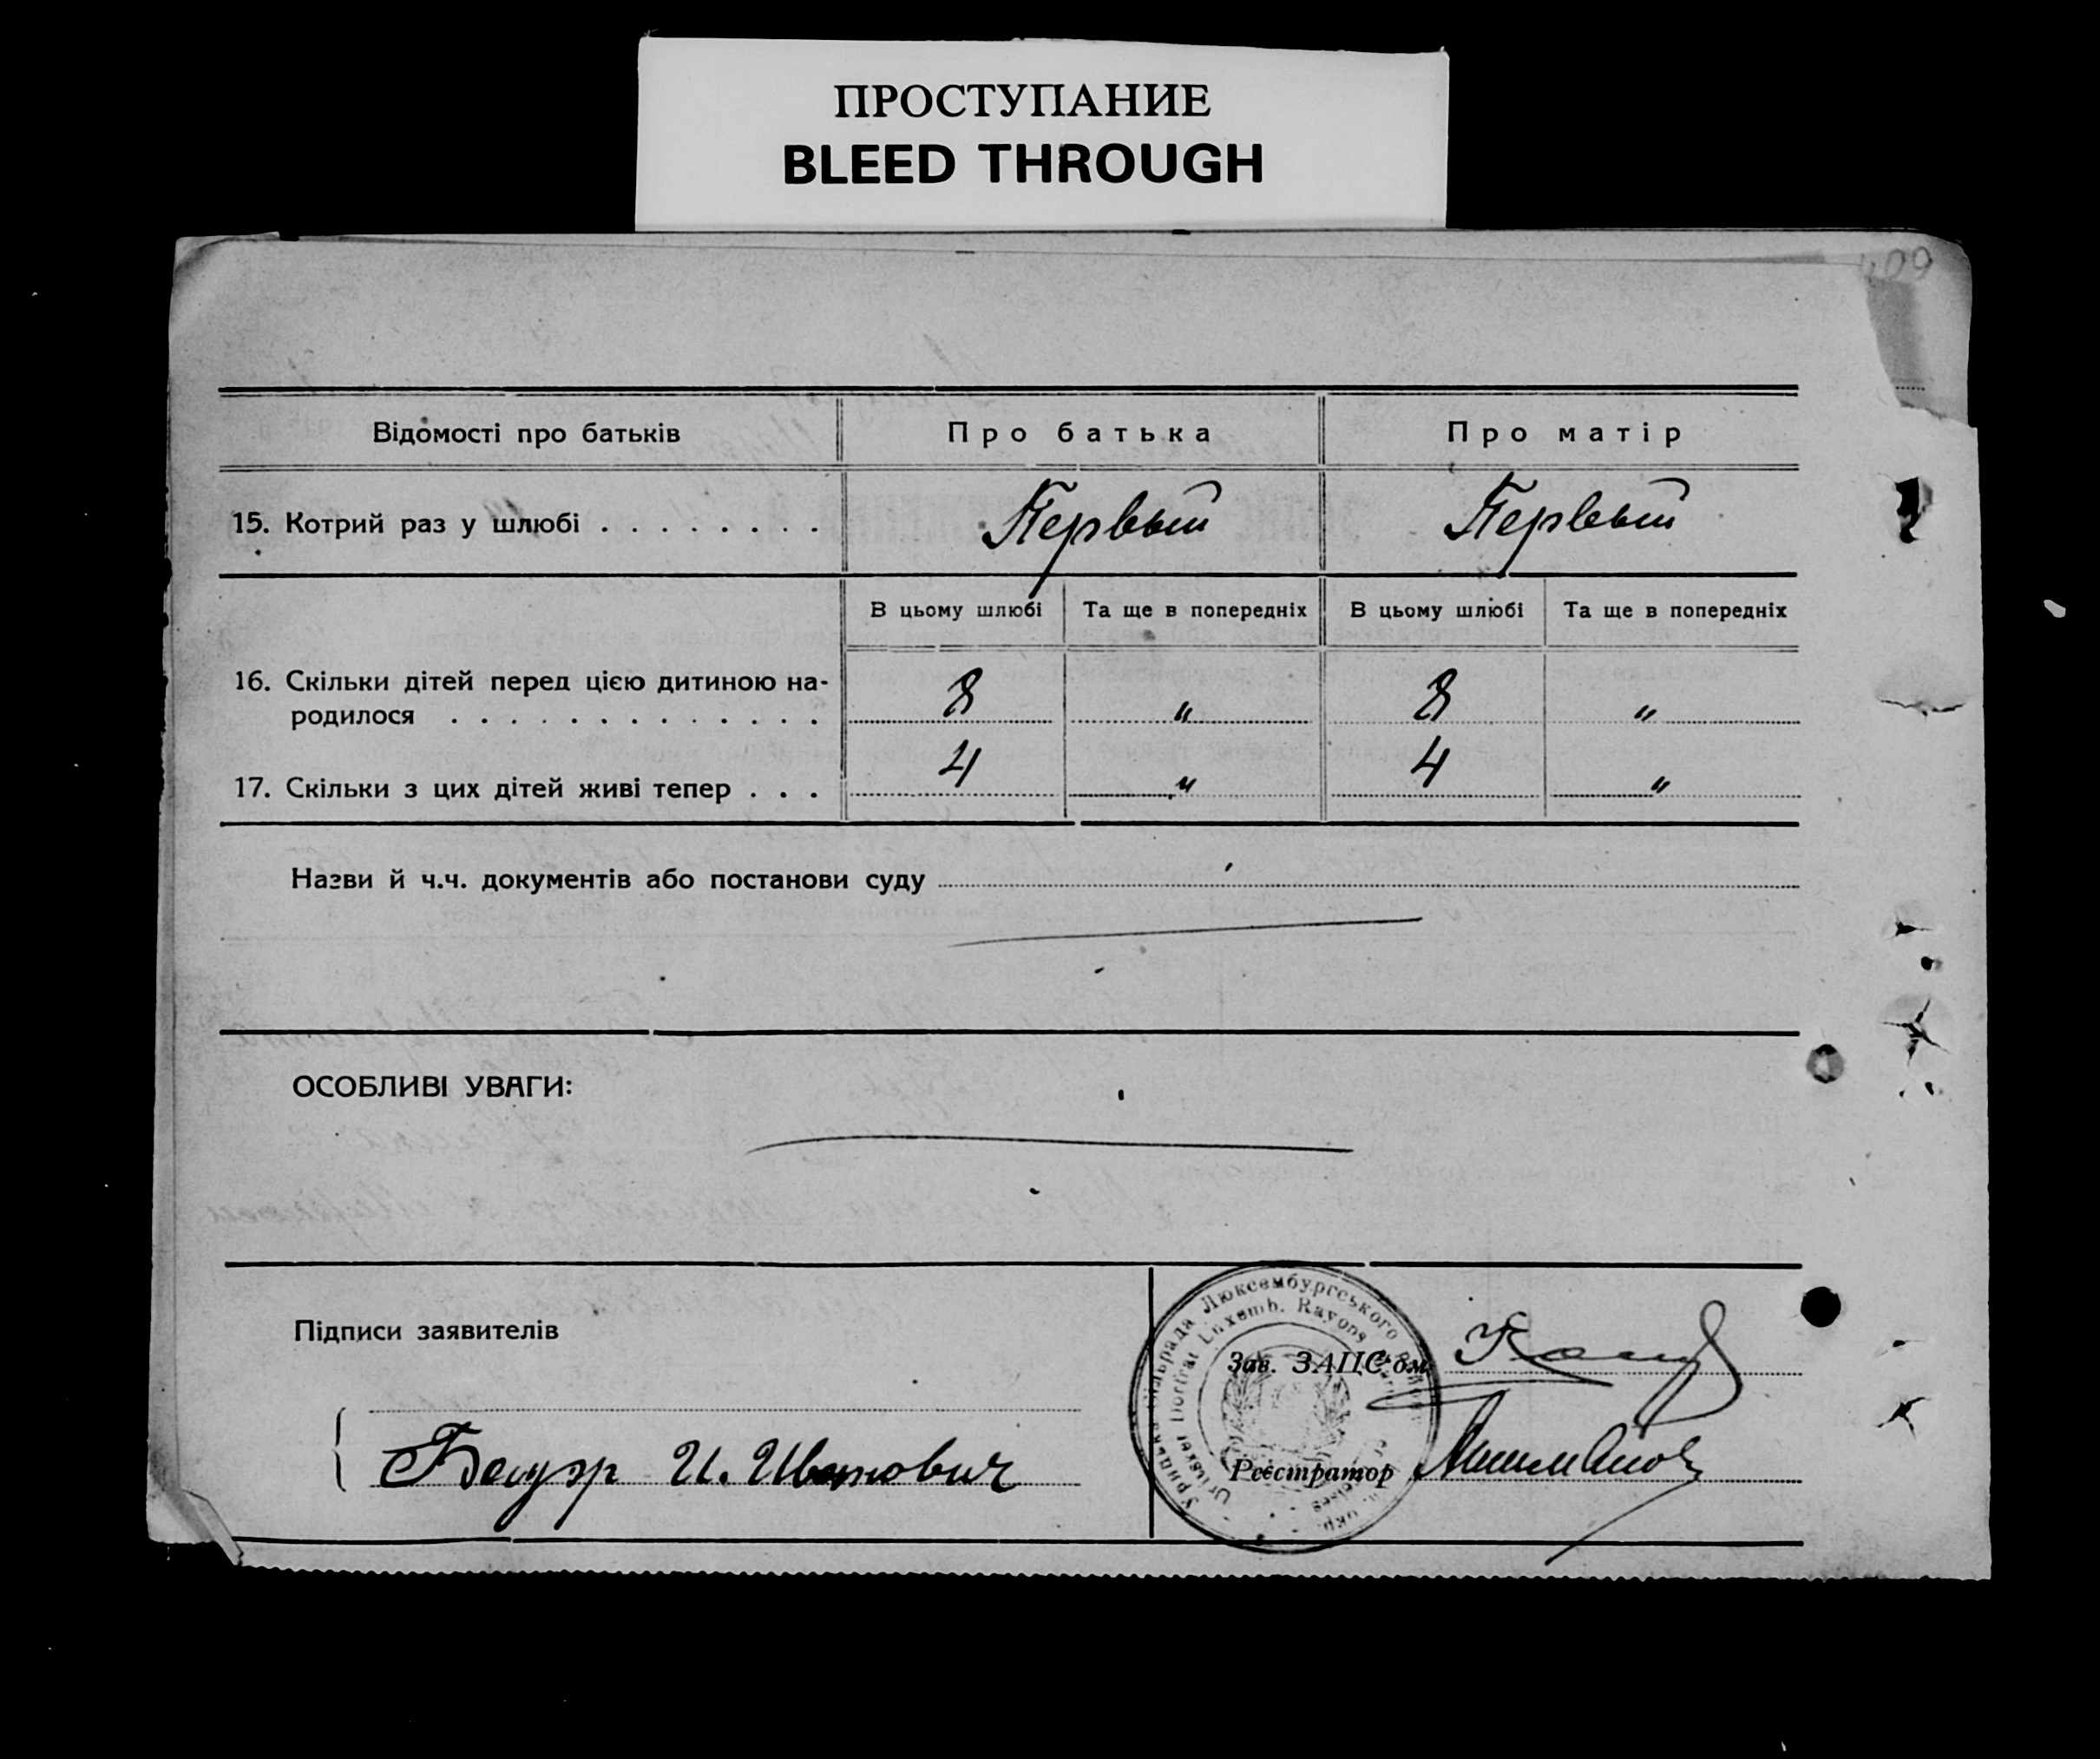 ПРОСТУПАНИЕ
BLEED THROUGH
409
Відомості про батьків Про батька Про матір
15. Котрий раз у шлюбі . . . . . . . . Первый Первый
В цьому шлюбі Та ще в попередніх В цьому шлюбі Та ще в попередніх
16. Скільки дітей перед цією дитиною на-
родилося . . . . . . . . . . . . . 8 " 8 "
17. Скільки з цих дітей живі тепер . . . 4 " 4 "
Назви й ч.ч. документів або постанови суду
ОСОБЛИВІ УВАГИ:
Підписи заявителів
Люксембургського
Luxemb. Rayons
Зав. ЗАЦС'ом
Бауэр И. Иванович
Реєстратор